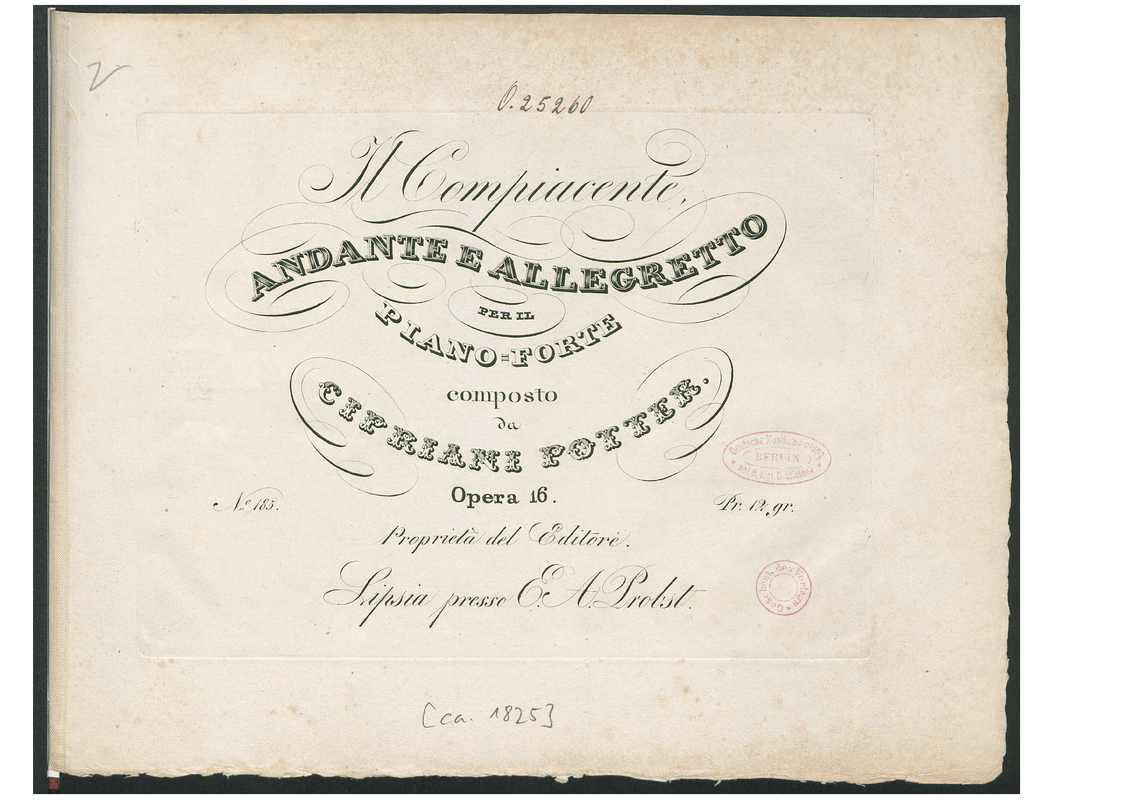 2
O.25260
Il Compiacente,
ANDANTE E ALLEGRETTO
PER IL
PIANO=FORTE
composto
da
CIPRIANI POTTER.
Deutsche Musiksammlung
BERLIN
bei d. kgl. Bibliothek
Opera 16.
No. 185.
Pr. 12 gr.
Proprietà del Editore.
Lipsia presso E. A. Probst.
Geschenk des Verlags
[ca. 1825]